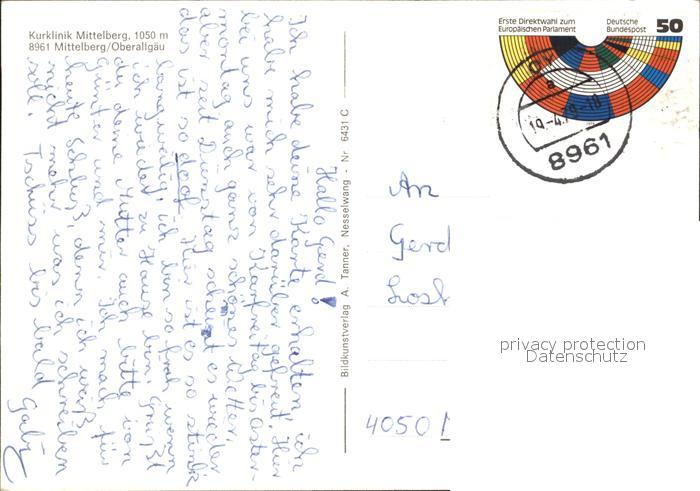 Kurklinik Mittelberg, 1050 m
8961 Mittelberg/Oberallgäu
Erste Direktwahl zum
Europäischen Parlament
Deutsche
Bundespost
50
8961
Bildkunstverlag A. Tanner, Nesselwang - Nr. 6431 C
Hallo Gerd!
Ich habe deine Karte erhalten, ich
habe mich sehr darüber gefreut. Hier
bei uns war von Karfreitag bis Oster-
montag auch ganz schönes Wetter,
aber seit Dienstag scheint es wieder
das ist so doof. Hier ist es so stink
langweilig, ich bin so froh wenn
ich wieder zu Hause bin. Grüßt
du deine Mutter auch bitte von
Günter und mir. Ich mach für
heute Schluß, denn ich weiß
nicht mehr was ich schreiben
soll. Tschüss bis bald
Gaby
An
Gerd
4050
privacy protection
Datenschutz